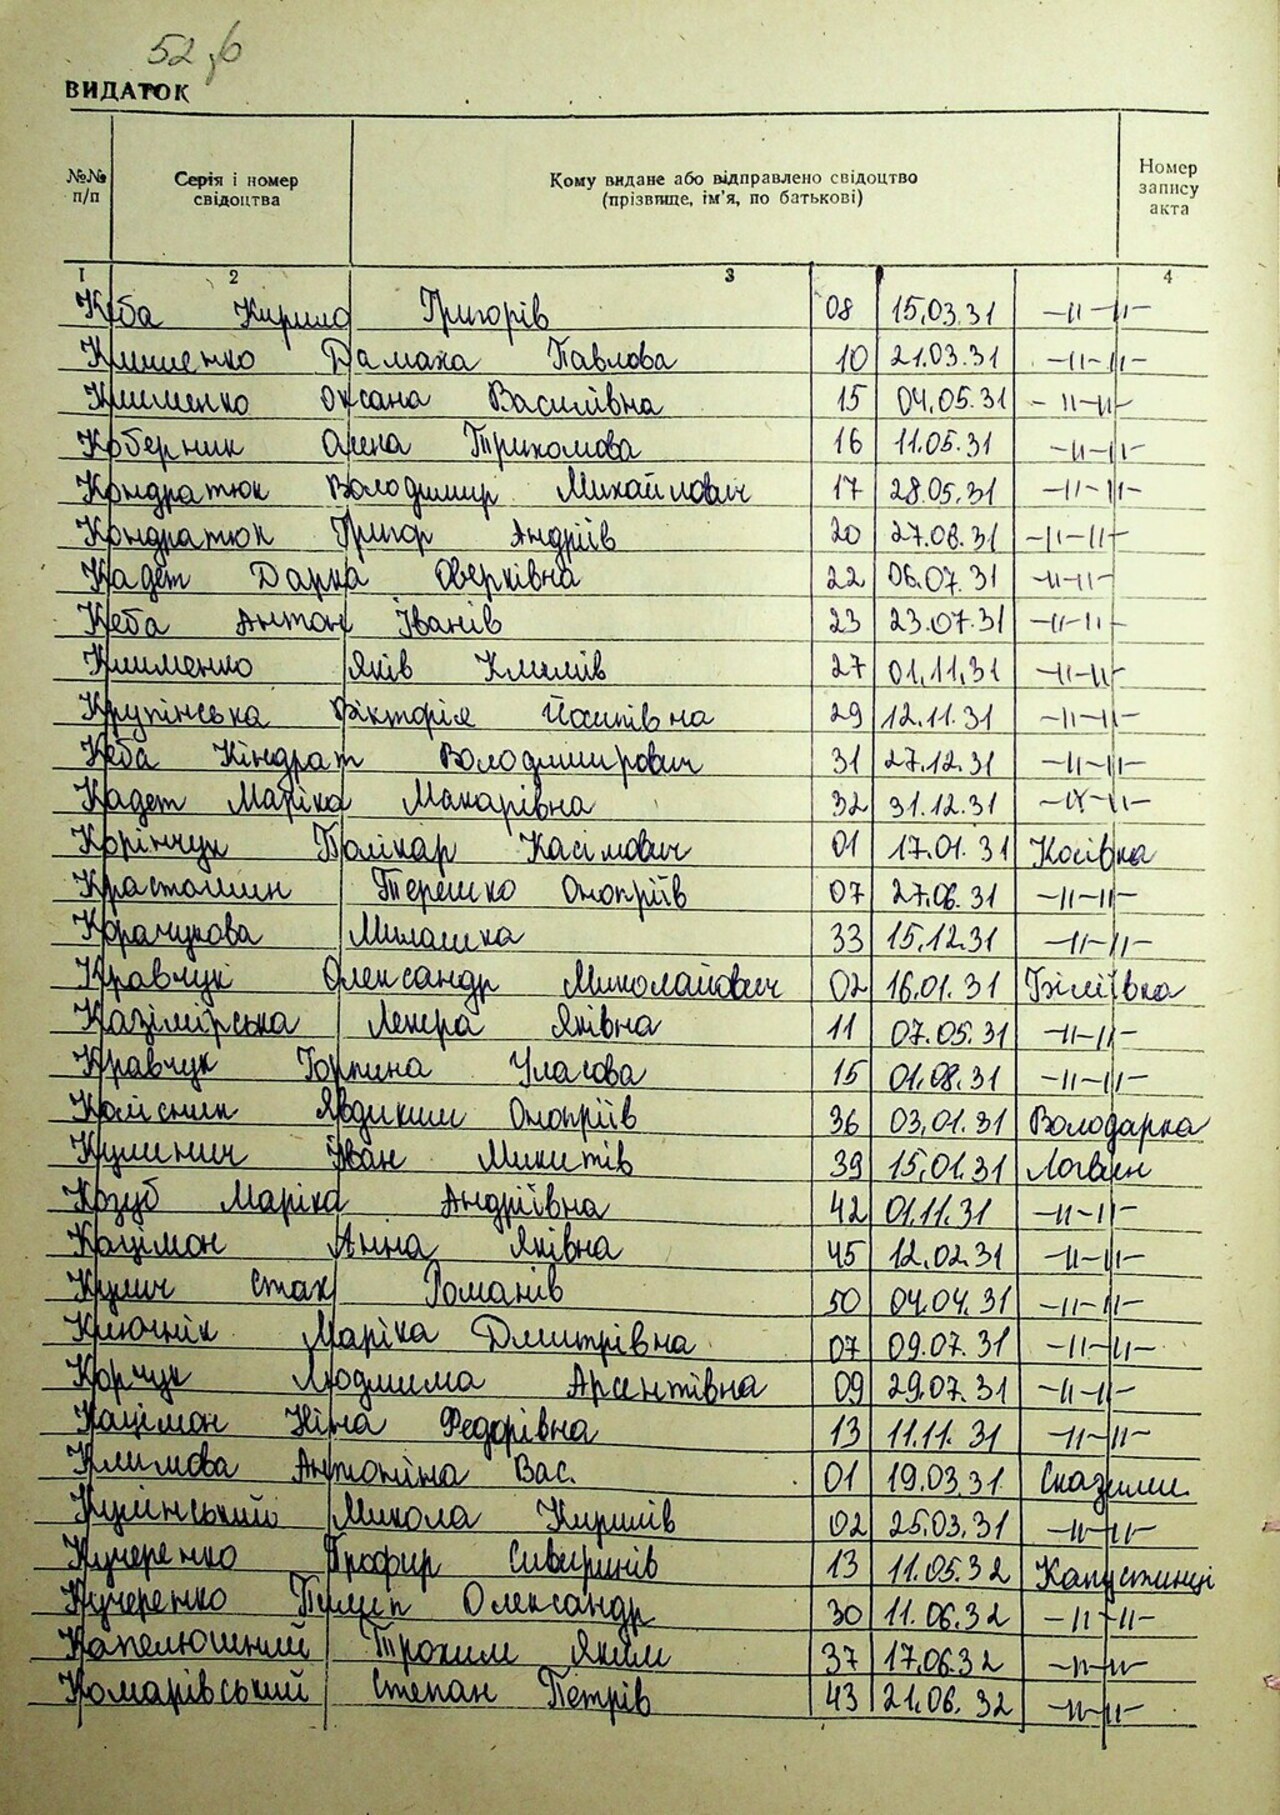 52
ВИДАТОК
№№ п/п Серія і номер свідоцтва Кому видане або відправлено свідоцтво (прізвище, ім'я, по батькові) Номер запису акта
1 2 3 4
Кеба Кирило Григорів 08 15.03.31 -"-"-
Клименко Палажка Павлова 10 21.03.31 -"-"-
Клименко Оксана Василівна 15 04.05.31 -"-"-
Коберник Олена Трихомова 16 11.05.31 -"-"-
Кондратюк Володимир Михайлович 17 28.05.31 -"-"-
Кондратюк Григор Андріїв 20 27.06.31 -"-"-
Кадет Дарка Оверківна 22 06.07.31 -"-"-
Кеба Антон Іванів 23 23.07.31 -"-"-
Клименко Яків Климів 27 01.11.31 -"-"-
Крупінська Вікторія Йосипівна 29 12.11.31 -"-"-
Кеба Кіндрат Володимирович 31 27.12.31 -"-"-
Кадет Маріка Макарівна 32 31.12.31 -"-"-
Корінчук Полікар Касімович 01 17.01.31 Косівка
Красташин Терешко Онопріїв 07 27.06.31 -"-"-
Корачукова Милашка 33 15.12.31 -"-"-
Кравчукі Олександр Миколайович 02 16.01.31 Біліївка
Казімірська Ленора Яківна 11 07.05.31 -"-"-
Кравчук Горпина Уласова 15 01.08.31 -"-"-
Колісник Явдиким Онопріїв 36 03.01.31 Володарка
Кулинич Іван Микитів 39 15.01.31 Логвин
Козуб Маріка Андріївна 42 01.11.31 -"-"-
Кацімон Анна Яківна 45 12.02.31 -"-"-
Кулич Стах Романів 50 04.04.31 -"-"-
Ключнік Маріка Дмитрівна 07 09.07.31 -"-"-
Корчук Людмила Арсентівна 09 29.07.31 -"-"-
Кацімон Ніна Федорівна 13 11.11.31 -"-"-
Климова Антоніна Вас. 01 19.03.31
Кулінський Микола Кирилів 02 25.03.31 -"-"-
Кучеренко Профир Сивиринів 13 11.05.32 Капустинці
Кучеренко Пилип Олександр 30 11.06.32 -"-"-
Капелюшний Трохим Яким 37 17.06.32 -"-"-
Комарівський Степан Петрів 43 21.06.32 -"-"-